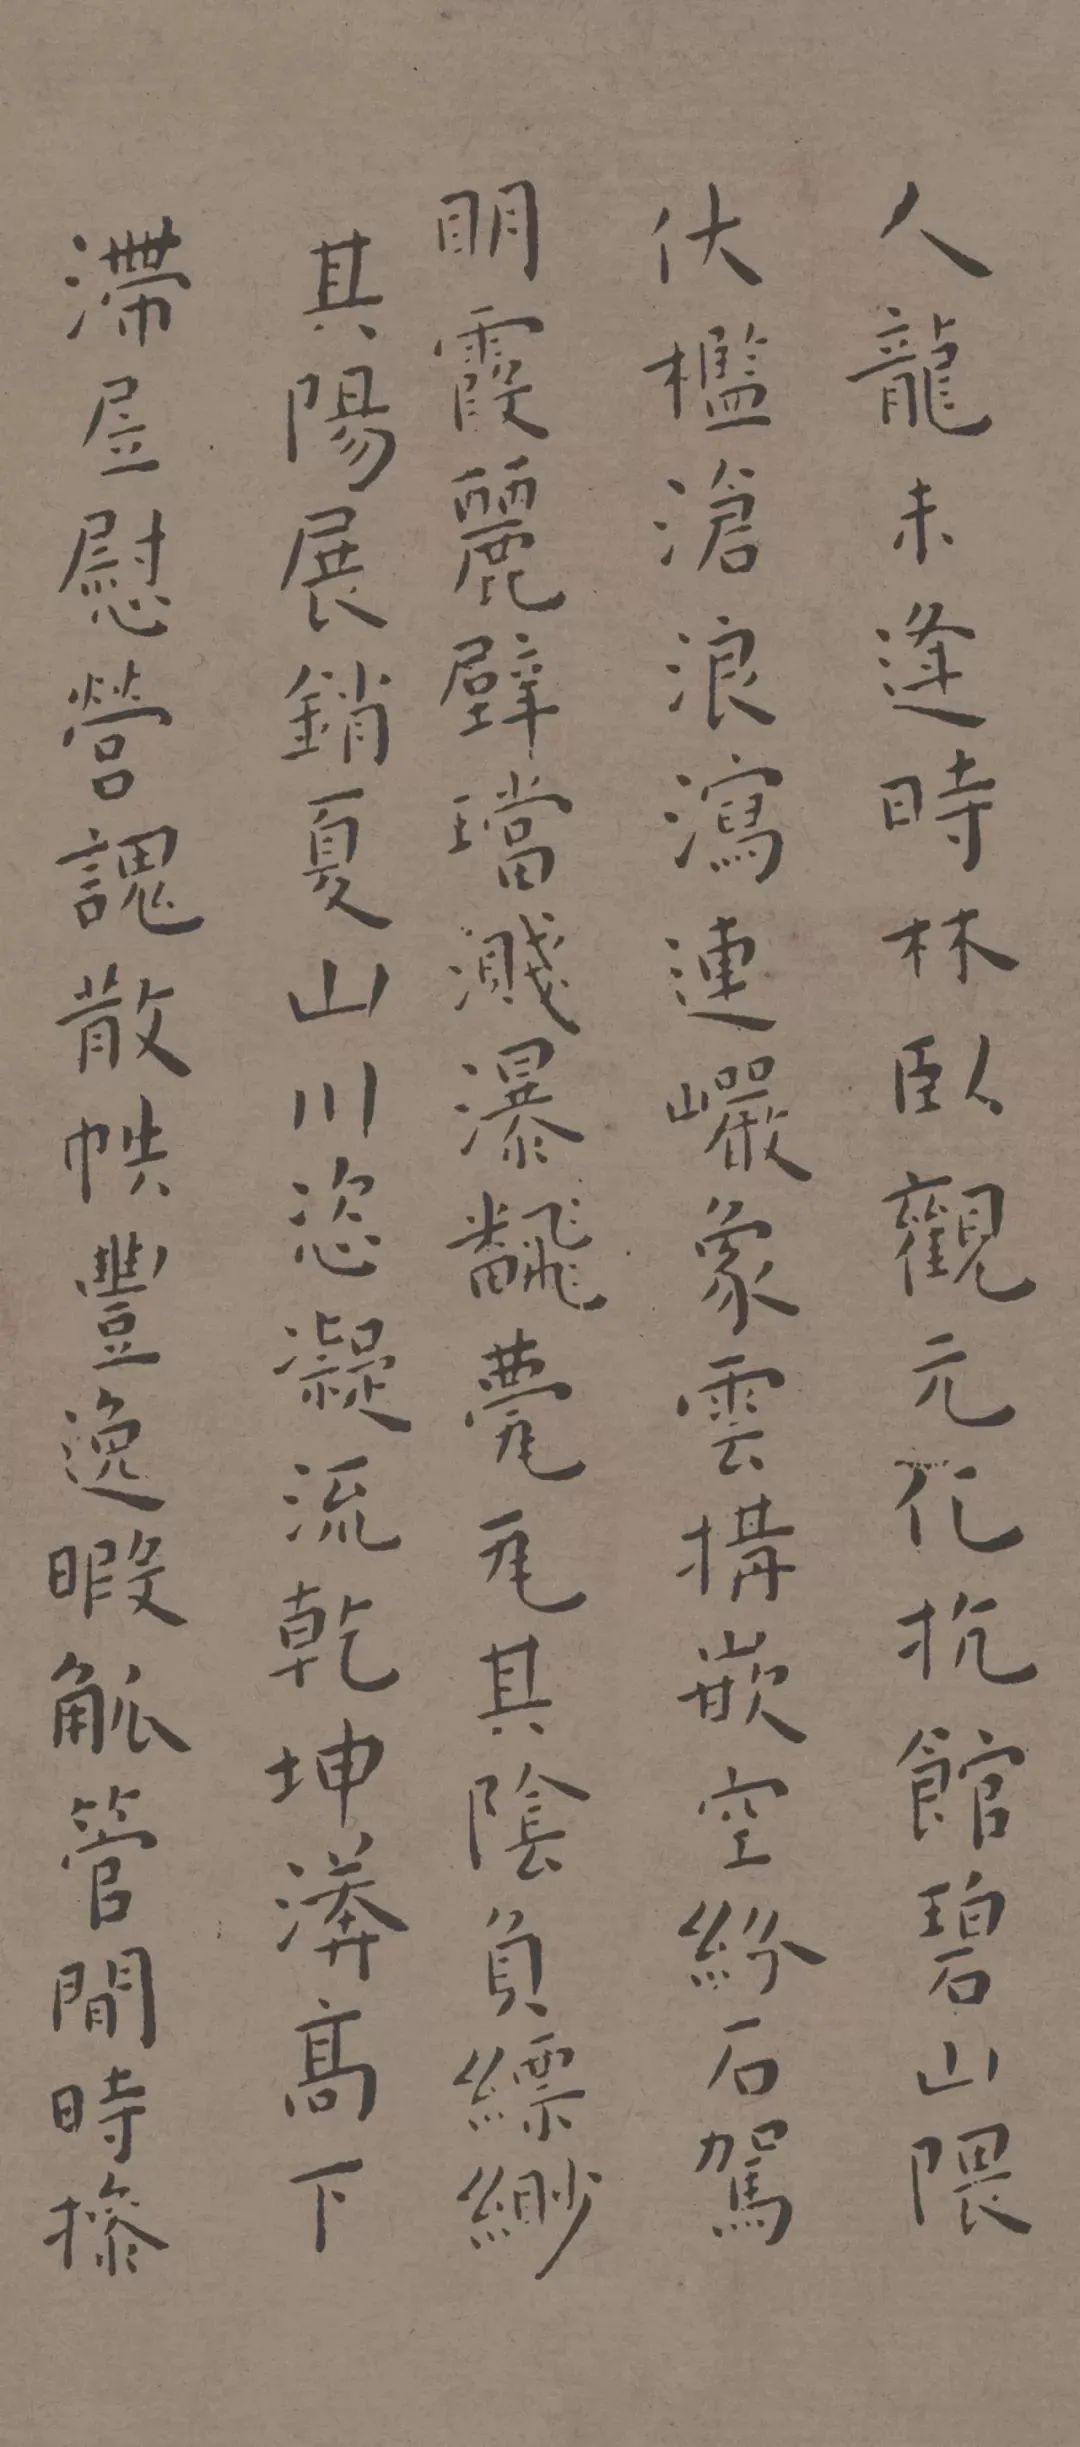 人龍未逢時林臥觀元化抗館碧山隈
伏檻滄浪瀉連巖象雲構嵌空紛石駕
明霞麗璧璫濺瀑飜甍瓦其陰負縹緲
其陽展銷夏山川恣凝流乾坤漭高下
滯屋慰營謥散帙豐逸暇觚管閒時操